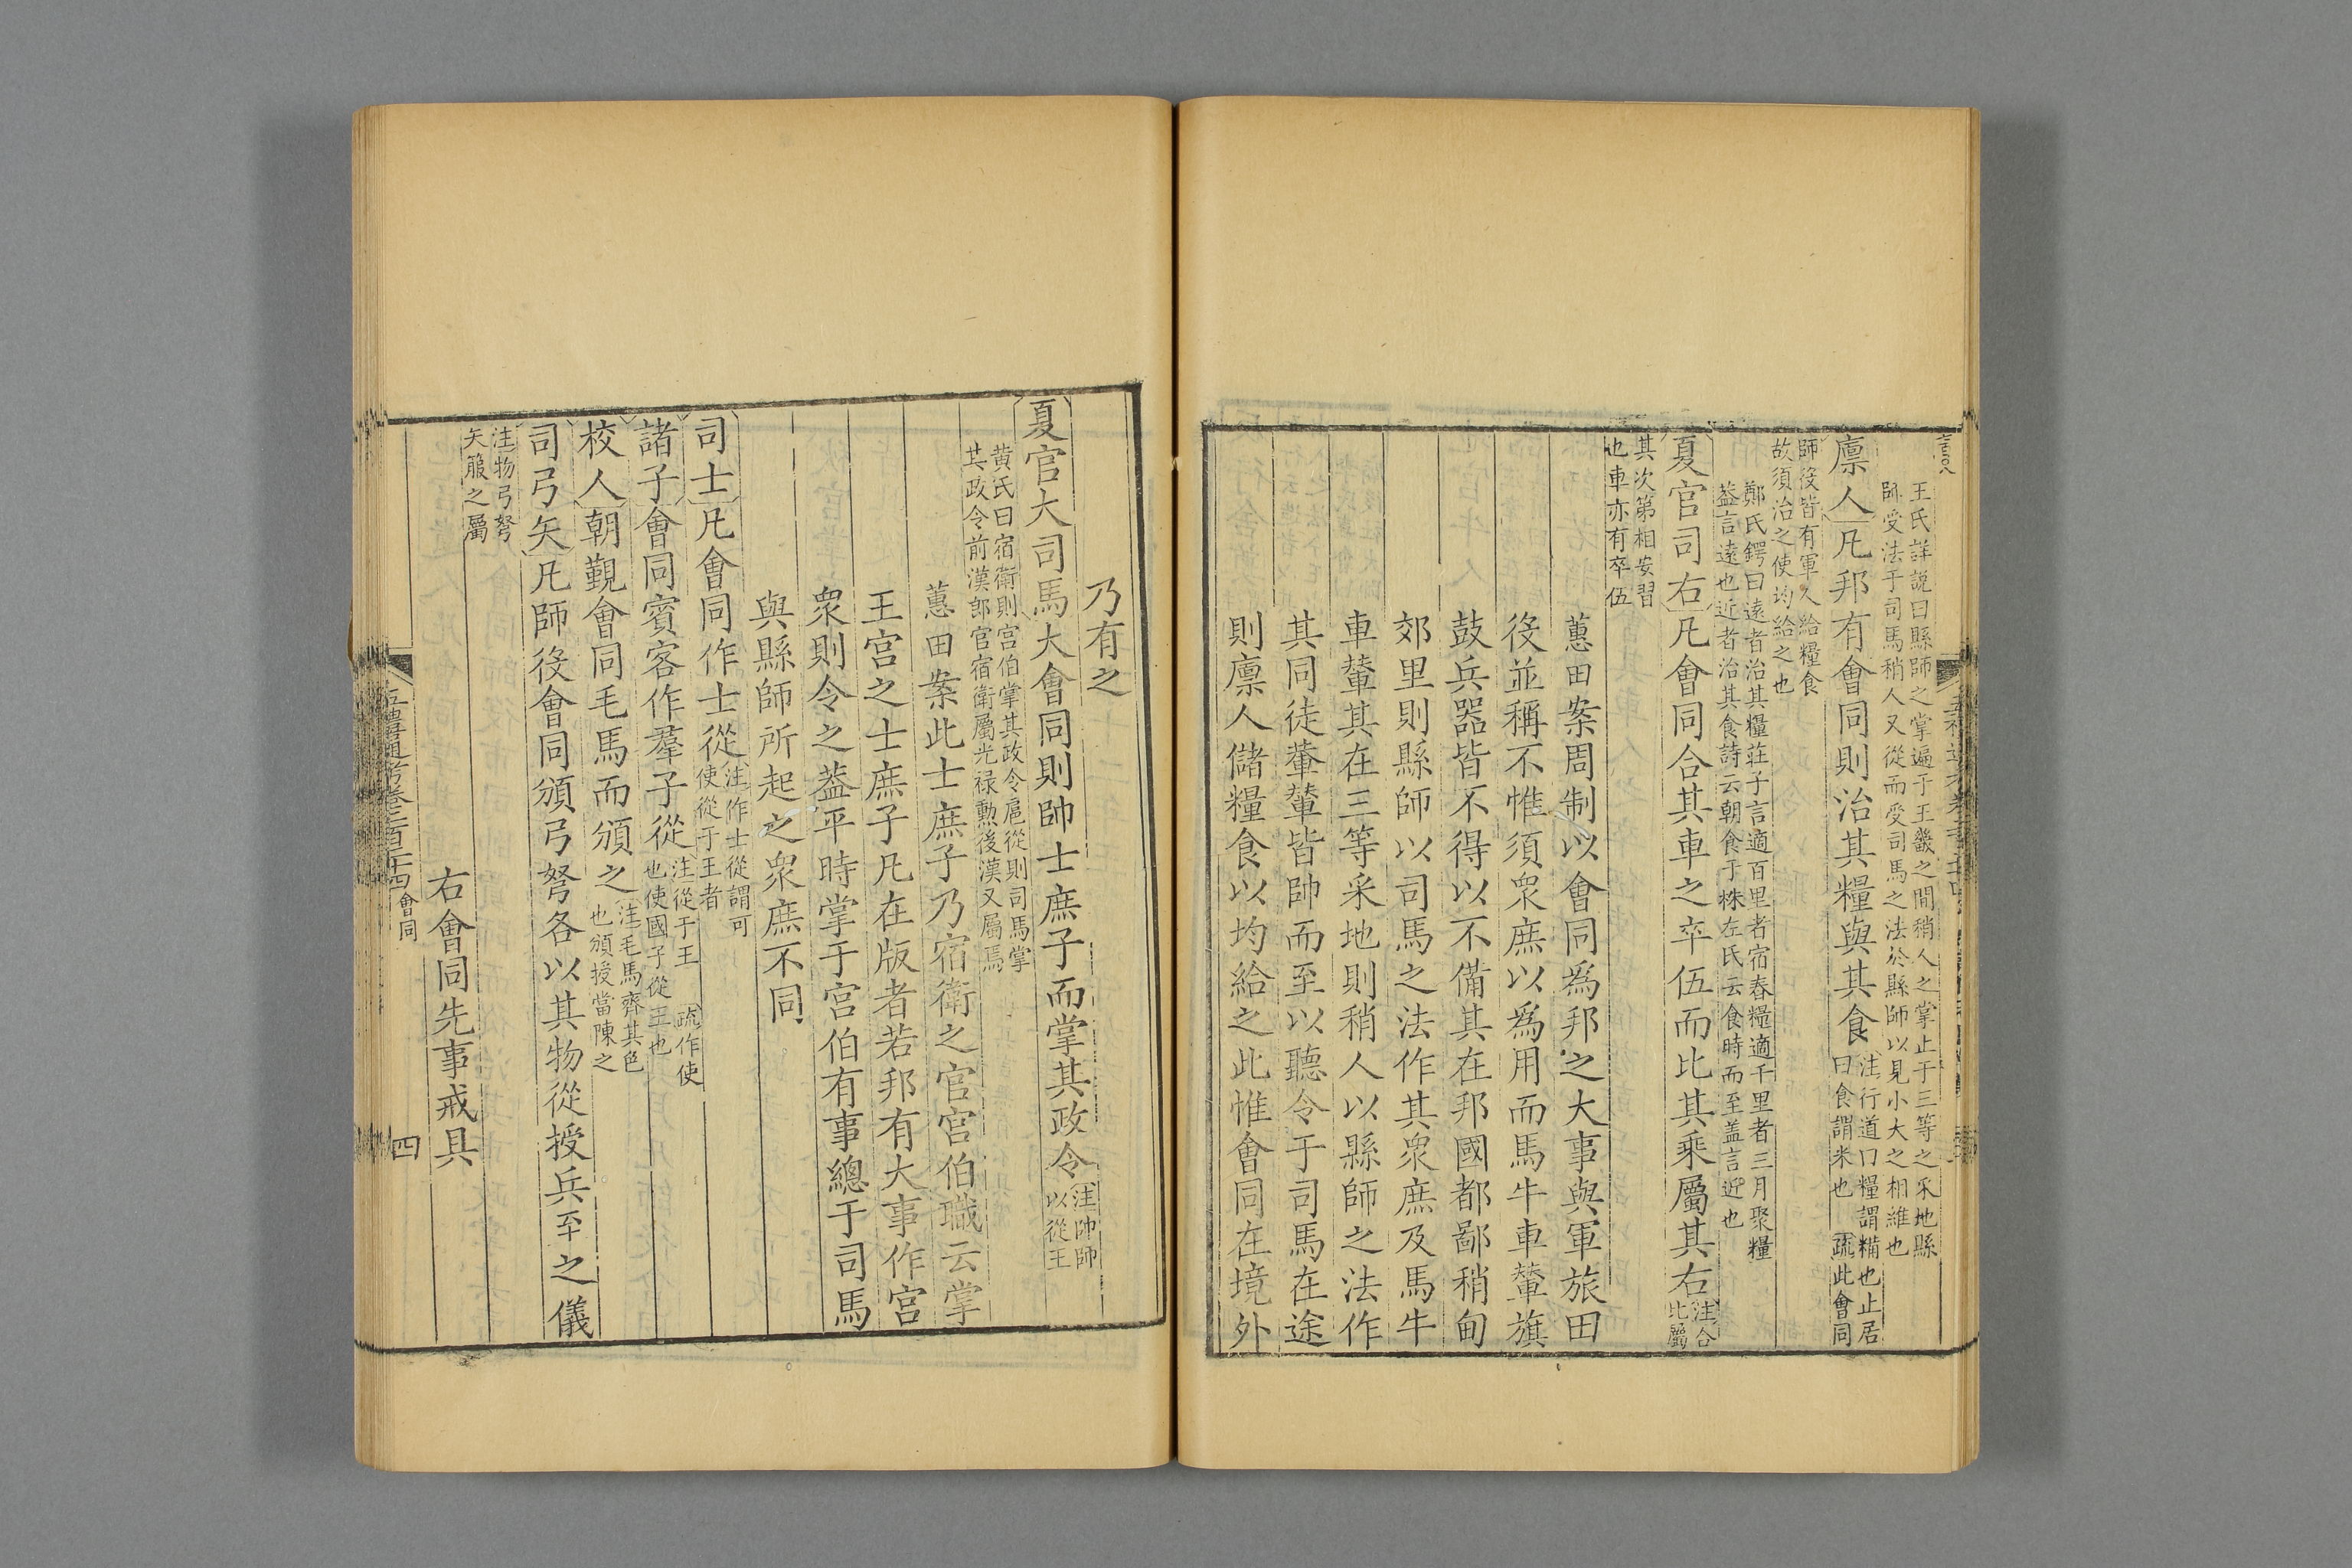 王氏詳說曰縣師之掌遍于王畿之間稍人之掌止于三等之采地縣
師受法于司馬稍人又從而受司馬之法於縣師以見小大之相維也
廩人凡邦有會同則治其糧與其食注行道曰糧謂糒也止居
曰食謂米也 疏此會同
師役皆有軍人給糧食
故須治之使均給之也
鄭氏鍔曰遠者治其糧莊子言適百里者宿舂糧適千里者三月聚糧
葢言遠也近者治其食詩云朝食于株左氏云食時而至盖言近也
夏官司右凡會同合其車之卒伍而比其乘屬其右注合
比屬
其次第相安習
也車亦有卒伍
蕙田案周制以會同爲邦之大事與軍旅田
役並稱不惟須衆庶以爲用而馬牛車輦旗
鼓兵器皆不得以不備其在邦國都鄙稍甸
郊里則縣師以司馬之法作其衆庶及馬牛
車輦其在三等采地則稍人以縣師之法作
其同徒輂輦皆帥而至以聽令于司馬在途
則廩人儲糧食以均給之此惟會同在境外
乃有之
夏官大司馬大會同則帥士庶子而掌其政令注帥師
以從王
黃氏曰宿衛則宮伯掌其政令扈從則司馬掌
其政令前漢郎官宿衛屬光禄勲後漢又屬焉
蕙田案此士庶子乃宿衛之官宮伯職云掌
王宮之士庶子凡在版者若邦有大事作宮
衆則令之葢平時掌于宮伯有事總于司馬
與縣師所起之衆庶不同
司士凡會同作士從注作士從謂可
使從于王者
諸子會同賓客作羣子從注從于王 疏作使
也使國子從王也
校人朝覲會同毛馬而頒之注毛馬齊其色
也頒授當陳之
司弓矢凡師役會同頒弓弩各以其物從授兵至之儀
注物弓弩
矢箙之屬
右會同先事戒具
五禮通考卷二百二十四 會同
四